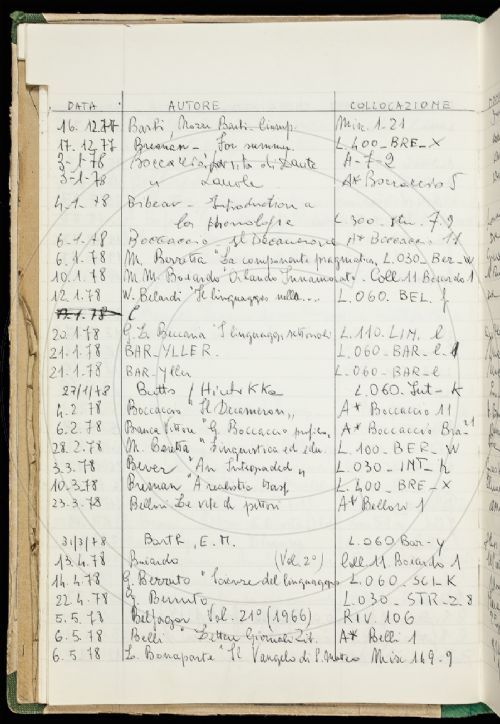 DATA AUTORE COLLOCAZIONE
16.12.77 Barbi, Nozze Misc. 1-21
17.12.77 Bresnan - For L.400-BRE-X
3-1-78 Boccaccio vita di Dante A-7-2
3-1-78 " A* Boccaccio 5
4-1-78 - Introduction a
la phonologie L.300 7.2
6-1-78 Boccaccio Il Decamerone A* Boccaccio 11
6.1.78 M. Berretta "La componente pragmatica, L.030-Ber-W
10.1.78 M.M. Boiardo "Orlando Innamorato. Coll. 11 Boiardo 1
12.1.78 W. Belardi "Il linguaggio nella.... L.060.BEL.
20.1.78 G.L. Beccaria "I linguaggi settoriali L.110-LIN.
21.1.78 BAR-YLLER. L.060-BAR-
21.1.78 BAR-Yller L.060-BAR-
27/1/78 Butts / Hintikka L.060. K
4.2.78 Boccaccio "Il Decameron" A* Boccaccio 11
6.2.78 Branca Vittore "G. Boccaccio A* Boccaccio Bra-1
28.2.78 M. Beretta "Linguistica ed L.100-BER-W
3.3.78 Bever "An Integrated" L.030-INT-K
10.3.78 Bresnan "A realistic L.400-BRE-X
23.3.78 Bellori Le vite di pittori A* Bellori 1
31/3/78 Barth, E.M. L.060 Bar-y
13.4.78 Boiardo (Vol. 2°) Coll. 11. Boiardo 1
14.4.78 G. Berruto "Scienze del linguaggio L.060-SCI-K
22.4.78 G. Berruto L.030-STR-Z.8
5.5.78 Belfagor Vol. 21° (1966) RIV. 106
6.5.78 Belli "Lettere Giornali Zib. A* Belli 1
6.5.78 L. Bonaparte "Il Vangelo di S. Matteo Misc 149.9